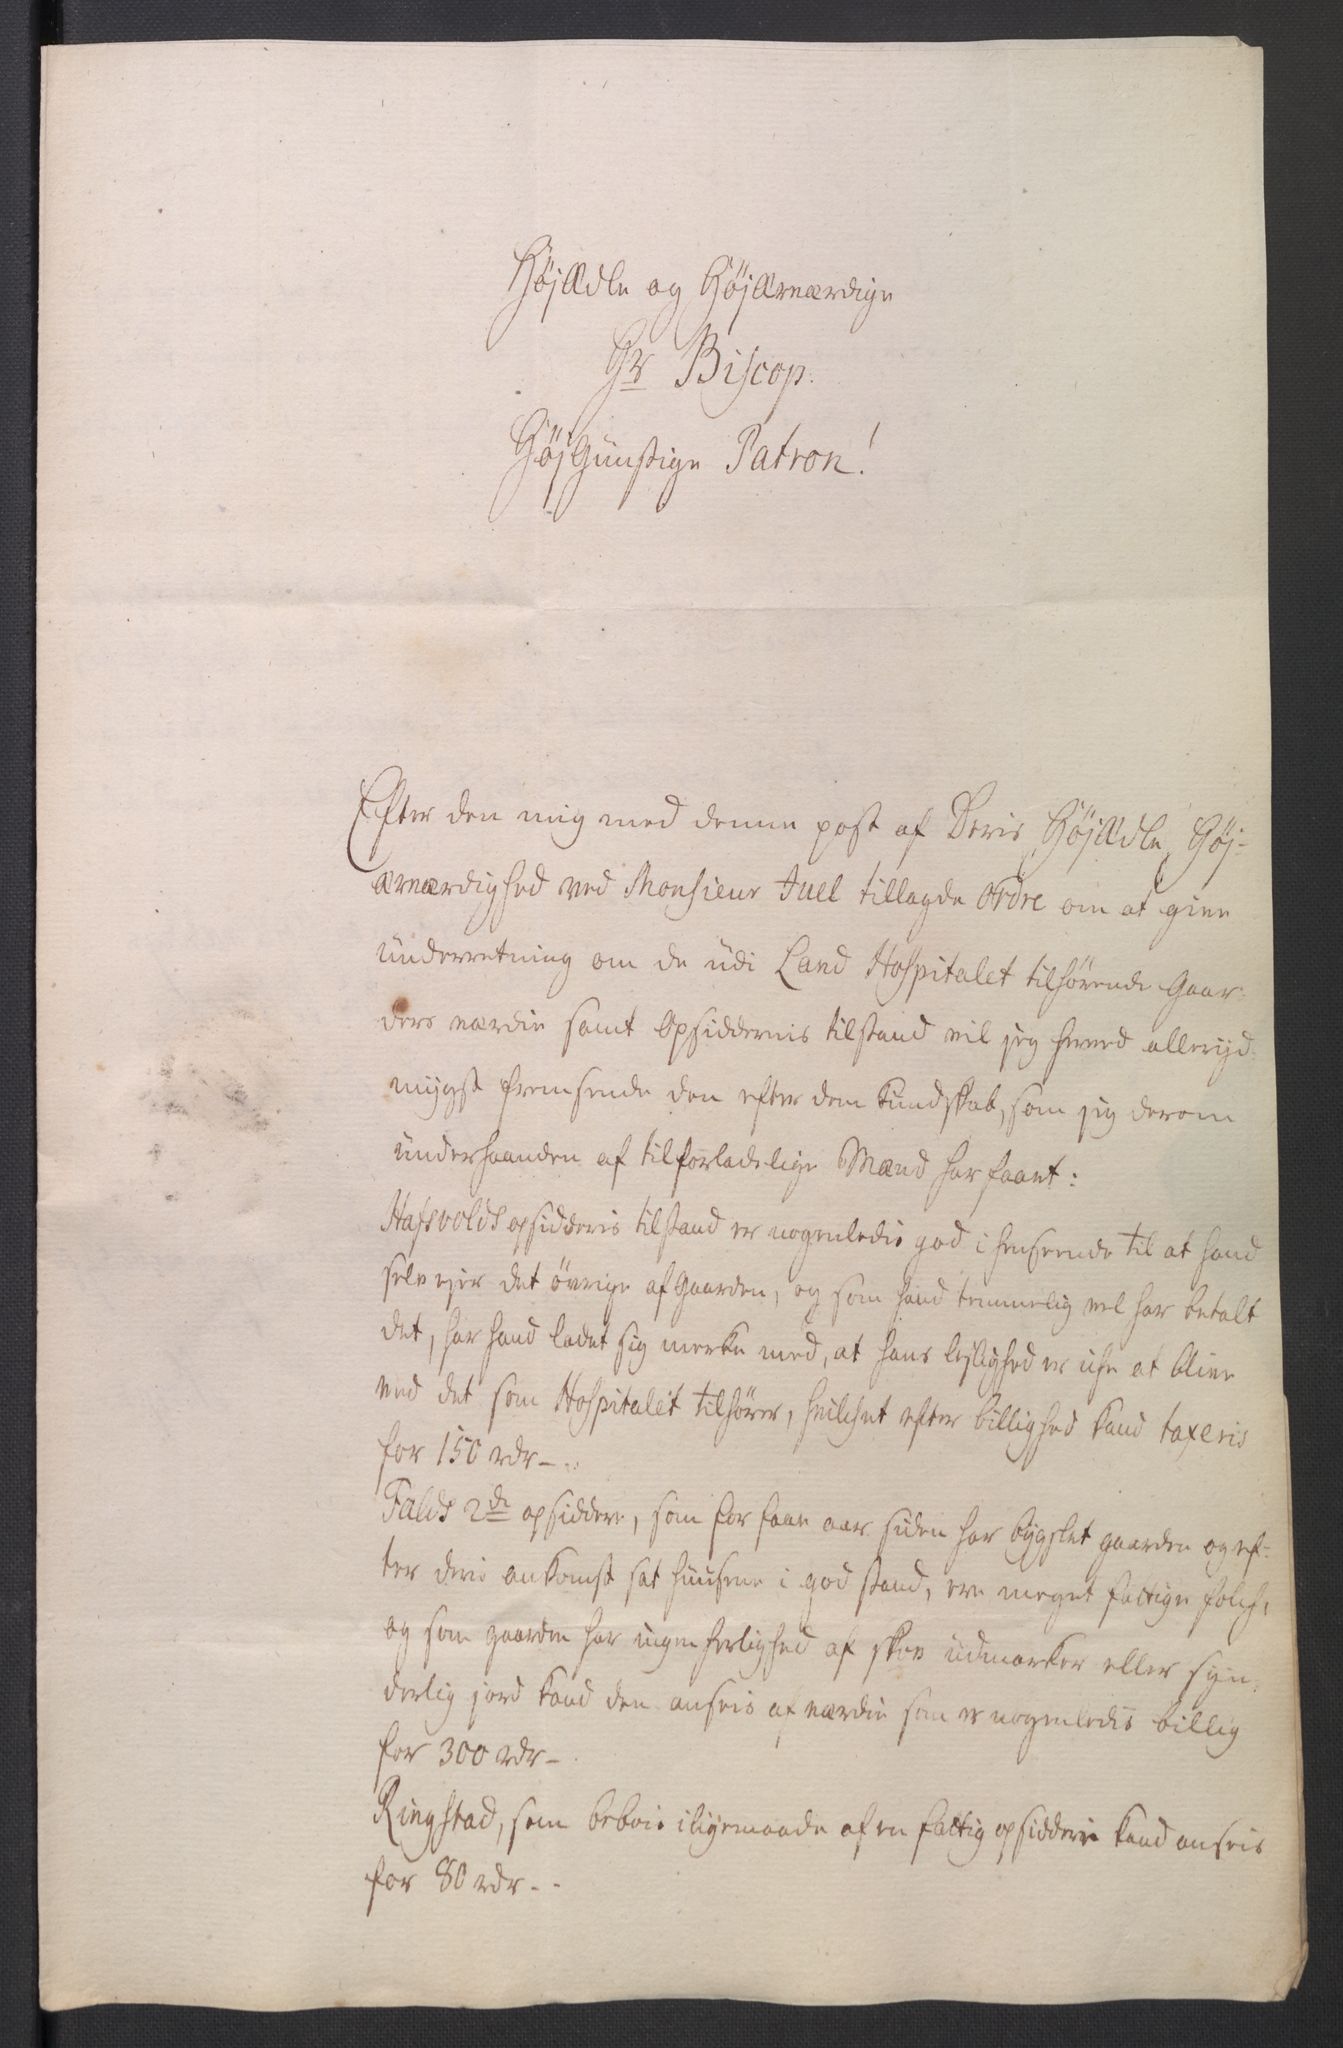 HøjÆdle og HøjÆrværdige
Hr Biscop.
HøjGunstige Patron!
Efter den mig med denne post af Deris HøjÆdle Høj-
ærværdighed ved Monsieur Juel tillagde Ordre om at give
underretning om de udi Land Hospitalet tilhørende Gaar-
ders værdie samt Opsiddernis tilstand vil jeg herved allerÿd-
mÿgst fremsende den efter den kundskab, som jeg derom
underhaanden af tilforladelige Mænd har faaet:
Hafsvolds opsidderis tilstand er nogenledis god i henseende til at hand
selv ejer det øvrige af Gaarden, og som hand temmelig vel har betalt
det, har hand ladet sig merke med, at hans lejlighed er iche at blive
ved det som Hospitalet tilhører, hvilchet efter billighed kand taxeris
for 150 rdr -
Falds 2de opsiddere, som for faae aar siden har bÿgslet gaarden og ef-
ter deris ankomst sat huusene i god stand, ere meget fattige folch,
og som gaarden har ingen herlighed af skov udmarker eller sÿn-
derlig jord kand den ansees af værdie som er nogenledis billig
for 300 rdr -
Ringstad, som beboes iligemaade af en fattig opsidder kand ansees
for 80 rdr - -